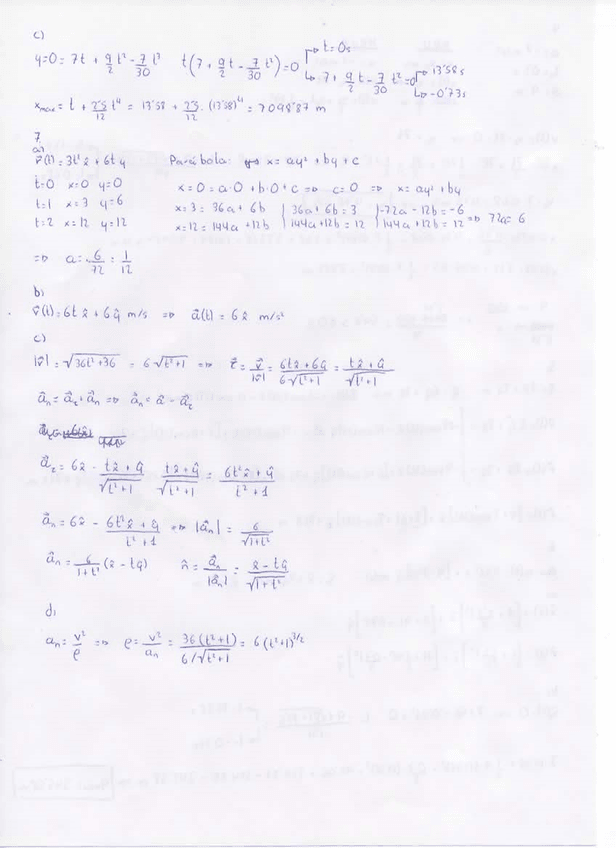 c)
y=0= 7t + 9/2 t² - 7/30 t³ t(7 + 9/2 t - 7/30 t²)=0 t=0s
7 + 9/2 t - 7/30 t²=0 13'58s
-0'73s
x_max = t + 2'5/12 t⁴ = 13'58 + 2'5/12 · (13'58)⁴ = 7098'87 m
7
a)
r⃗(t)=3t² x̂ + 6t ŷ Parábola: x= ay² + by + c
t=0 x=0 y=0 x=0= a·0 + b·0 + c => c=0 => x= ay² + by
t=1 x=3 y=6 x=3= 36a + 6b { 36a+6b=3 { -72a - 12b = -6
t=2 x=12 y=12 x=12= 144a + 12b { 144a+12b=12 { 144a+12b=12 => 72a= 6
=> a= 6/72 = 1/12
b)
v⃗(t)=6t x̂ + 6 ŷ m/s => a⃗(t)= 6 x̂ m/s²
c)
|v⃗|= √36t²+36 = 6√t²+1 => τ⃗ = v⃗/|v⃗| = 6t x̂ + 6 ŷ/6√t²+1 = t x̂ + ŷ/√t²+1
a⃗n = a⃗τ + a⃗n => a⃗n = a⃗ - a⃗τ
a⃗τ = 6x̂ · t x̂ + ŷ/√t²+1 t x̂ + ŷ/√t²+1 = 6t² x̂ + ŷ/t²+1
a⃗n = 6x̂ - 6t² x̂ + ŷ/t²+1 => |a⃗n| = 6/√1+t²
a⃗n = 6/1+t² (x̂ - tŷ) n̂ = a⃗n/|a⃗n| = x̂ - tŷ/√1+t²
d)
an = v²/ρ => ρ= v²/an = 36(t²+1)/6/√t²+1 = 6(t²+1)^3/2